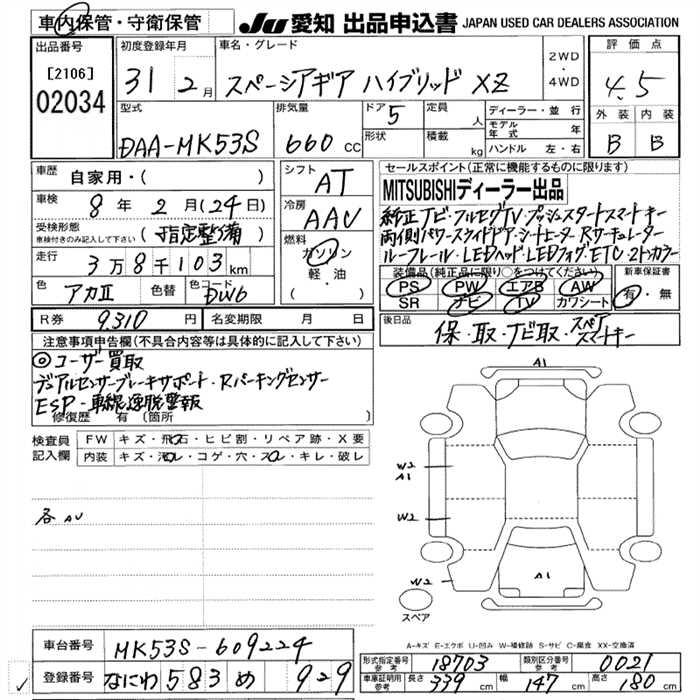 車内保管・守衛保管
JU 愛知 出品申込書 JAPAN USED CAR DEALERS ASSOCIATION
出品番号
[2106]
02034
初度登録年月
31 2月
車名・グレード
スペーシアギア ハイブリッド XZ
2WD
・
4WD
評価点
4.5
外装 内装
B B
型式
DAA-MK53S
排気量
660 CC
ドア 5
形状
定員
人
積載
kg
ディーラー・並行
モデル年式 年
ハンドル 左・右
車歴
自家用・( )
車検
8年 2月(24日)
受検形態
車検付きのみ記入して下さい
(指定整備)
走行
3万8千103km
色
アカⅡ
色替
色コード
DW6
シフト
AT
冷房
AAC
燃料
ガソリン
軽・油
( )
セールスポイント(正常に機能するものに限ります)
MITSUBISHIディーラー出品
純正ナビ・フルセグTV・プッシュスタートスマートキー
両側パワースライドドア・シートヒーター・Rサーキュレーター
ルーフレール・LEDヘッド・LEDフォグ・ETC・2トンカラー
装備品(純正品に限り○をつけてください)
PS PW エアB AW
SR ナビ TV カワシート
新車保証書
有・無
R券
9310円
名変期限 月 日
後日品
保・取・ナビ取・スペアスマートキー
注意事項申告欄(不具合内容等は具体的に記入して下さい)
◎ユーザー買取
デュアルセンサーブレーキサポート・Rパーキングセンサー
ESP・車線逸脱警報
修復歴 有(箇所 )
検査員記入欄
FW キズ・飛石・ヒビ割・リペア跡・X要
内装 キズ・汚レ・コゲ・穴・スレ・キレ・破レ
各AU
A1
W2
A1
W2
W2
A1
スペア
A-キズ E-エクボ U-凹み W-補修跡 S-サビ C-腐食 XX-交換済
車台番号
MK53S-609224
登録番号
なにわ 583 め 929
形式指定番号
参考
18703
類別区分番号
参考
0021
車庫証明用
参考
長さ 339cm 幅 147cm 高さ 180cm